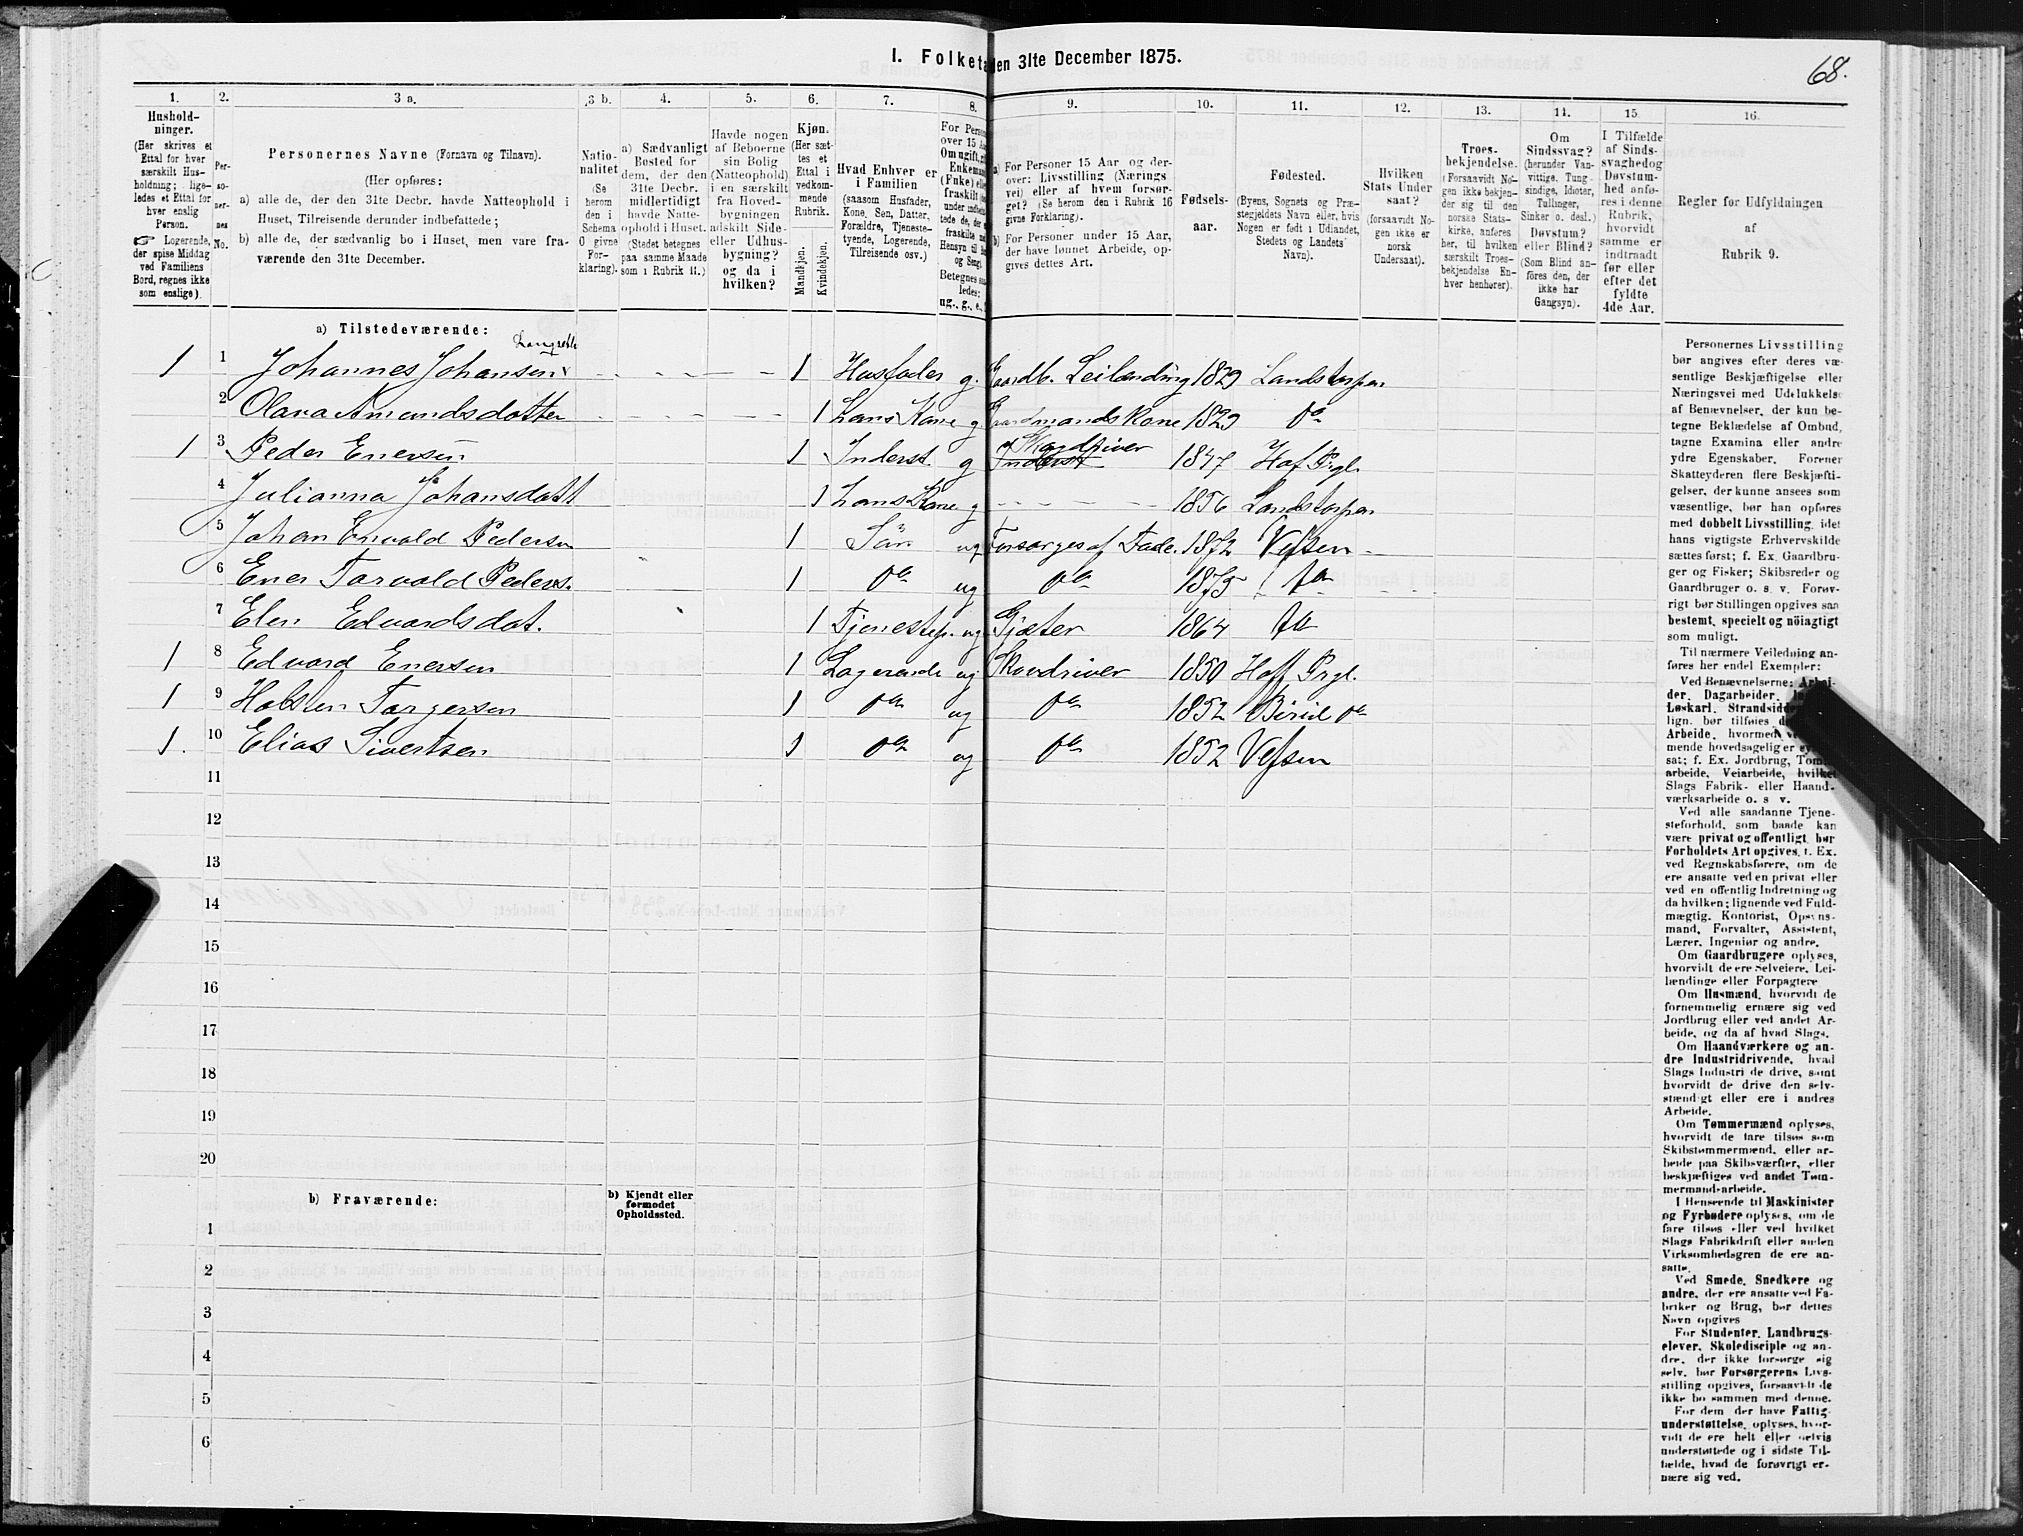 I. Folketa en 31te December 1875.
68.
1. 2. 3 a. 3 b. 4. 5. 6. 7. 8. 9. 10. 11. 12. 13. 14. 15. 16.
Hushold-
ninger.
(Her skrives et
Ettal for hver
særskilt Hus-
holdning; lige-
ledes et Ettal for
hver enslig
Person.
☞ Logerende,
der spise Middag
ved Familiens
Bord, regnes ikke
som enslige).
Per-
so-
ner-
nes
No.
Personernes Navne (Fornavn og Tilnavn).
(Her opføres:
a) alle de, der den 31te Decbr. havde Natteophold i
Huset, Tilreisende derunder indbefattede;
b) alle de, der sædvanlig bo i Huset, men vare fra-
værende den 31te December.
Natio-
nalitet
(Se
herom
den i
Schema
O givne
For-
klaring).
a) Sædvanligt
Bosted for
dem, der den
31te Decbr.
midlertidigt
havde Natte-
ophold i Huset.
(Stedet betegnes
paa samme Maade
som i Rubrik 11.)
Havde nogen
af Beboerne
sin Bolig
(Natteophold)
i en særskilt
fra Hoved-
bygningen
adskilt Side-
eller Udhus-
bygning?
og da i
hvilken?
Kjøn.
(Her sæt-
tes et
Ettal i
vedkom-
mende
Rubrik.
Mandkjøn.
Kvindekjøn.
Hvad Enhver er
i Familien
(saasom Husfader,
Kone, Søn, Datter,
Forældre, Tjeneste-
tyende, Logerende,
Tilreisende osv.)
For Person
over 15 Aa
Om ugift, g
Enkeman
(Enke) elle
fraskilt
under indbe
tede de, de
fraskilte m
Hensyn til B
og Seng).
Betegnes sa
ledes:
ug., g., e.,
a) For Personer 15 Aar og der-
over: Livsstilling (Nærings
vei) eller af hvem forsør-
get? (Se herom den i Rubrik 16
givne Forklaring).
b) For Personer under 15 Aar,
der have lønnet Arbeide, op-
gives dettes Art.
Fødsels-
aar.
Fødested.
(Byens, Sognets og Præ-
stegjeldets Navn eller, hvis
Nogen er født i Udlandet,
Stedets og Landets
Navn).
Hvilken
Stats Under
saat?
(forsaavidt No-
gen ikke er
norsk
Undersaat).
Troes-
bekjendelse.
(Forsaavidt No-
gen ikke bekjen-
der sig til den
norske Stats-
kirke, anføres
her, til hvilken
særskilt Troes-
bekjendelse En-
hver henhører).
Om
Sindssvag?
(herunder Van-
vittige, Tung-
sindige, Idioter,
Tullinger,
Sinker o. desl.)
Døvstum?
eller Blind?
(Som Blind an-
føres den, der
ikke har
Gangsyn).
I Tilfælde
af Sinds-
svaghed og
Døvstum-
hed anfø-
res i denne
Rubrik,
hvorvidt
samme er
indtraadt
før eller
efter det
fyldte
4de Aar.
Regler for Udfyldningen
af
Rubrik 9.
a) Tilstedeværende:
1 1 Johannes Johansen 1 Husfader g. Gaardb. Leilending 1829 Landstorpen
2 Olava Amundsdotter 1 hans Kone g. Gaardmands Kone 1829 do
1 3 Peder Enersen 1 Inderst g Skovdriver Inderst 1847 Hof Prgl.
4 Julianna Johansdatt 1 hans Kone g 1856 Landstorpen
5 Johan Envald Pedersen 1 Sön ug Forsörges af Fade. 1872 Vefsen
6 Ener Torvald Peders. 1 do ug do 1875 do
7 Elen Edvardsdat. 1 Tjenestep. ug Gjæter 1864 do
1 8 Edvard Enersen 1 Logerende ug Skovdriver 1850 Hoff Prgl.
1 9 Halsten Torgersen 1 do ug do 1852 Birid do
1. 10 Elias Sivertsen 1 do ug do 1852 Vefsen
11
12
13
14
15
16
17
18
19
20
b) Fraværende:
b) Kjendt eller
formodet
Opholdssted.
1
2
3
4
5
6
Personernes Livsstilling
bør angives efter deres væ-
sentlige Beskjæftigelse eller
Næringsvei med Udelukkelse
af Benævnelser, der kun be-
tegne Beklædelse af Ombud,
tagne Examina eller andre
ydre Egenskaber. Forener
Skatteyderen flere Beskjæfti-
gelser, der kunne ansees som
væsentlige, bør han opføres
med dobbelt Livsstilling, idet
hans vigtigste Erhvervskilde
sættes først; f. Ex. Gaardbru-
ger og Fisker; Skibsreder og
Gaardbruger o. s. v. Forøv-
rigt bør Stillingen opgives saa
bestemt, specielt og nöiagtigt
som muligt.
Til nærmere Veiledning an-
føres her endel Exempler:
Ved Benævnelserne: Arbei-
der, Dagarbeider,
Løskarl, Strandsidd
lign. bør tilføies
Arbeide, hvormed
mende hovedsagelig er
sat; f. Ex. Jordbrug, Tom
arbeide, Veiarbeide, hvilket
Slags Fabrik- eller Haand-
værksarbeide o. s. v.
Ved alle saadanne Tjene-
steforhold, som baade kan
være privat og offentligt, bør
Forholdets Art opgives, f. Ex.
ved Regnskabsførere, om de
ere ansatte ved en privat eller
ved en offentlig Indretning og
da hvilken; lignende ved Fuld-
mægtig, Kontorist, Opsyns-
mand, Forvalter, Assistent,
Lærer, Ingeniør og andre.
Om Gaardbrugere oplyses,
hvorvidt de ere Selveiere, Lei-
lændinge eller Forpagtere
Om Husmænd, hvorvidt de
fornemmelig ernære sig ved
Jordbrug eller ved andet Ar-
beide, og da af hvad Slags.
Om Haandværkere og an-
dre Industridrivende, hvad
Slags Industri de drive, samt
hvorvidt de drive den selv-
stændigt eller ere i andres
Arbeide.
Om Tømmermænd oplyses,
hvorvidt de fare tilsøs som
Skibstømmermænd, eller ar-
beide paa Skibsværfter, eller
beskjæftiges ved andet Tøm-
mermandsarbeide.
I Henseende til Maskinister
og Fyrbødere oplyses, om de
fare tilsøs eller ved hvilket
Slags Fabrikdrift eller anden
Virksomhedsgren de ere an-
satte.
Ved Smede, Snedkere og
andre, der ere ansatte ved Fa-
briker og Brug, bør dettes
Navn opgives
For Studenter, Landbrugs-
elever, Skoledisciple og an-
dre, der ikke forsørge sig
selv, bør Forsørgerens Livs-
stilling opgives, forsaavidt de
ikke bo sammen med denne.
For dem, der have Fattig-
understøttelse, oplyses, hvor-
vidt de ere helt eller delvis
understøttede og i sidste Til-
fælde, hvad de forøvrigt er-
nære sig ved.